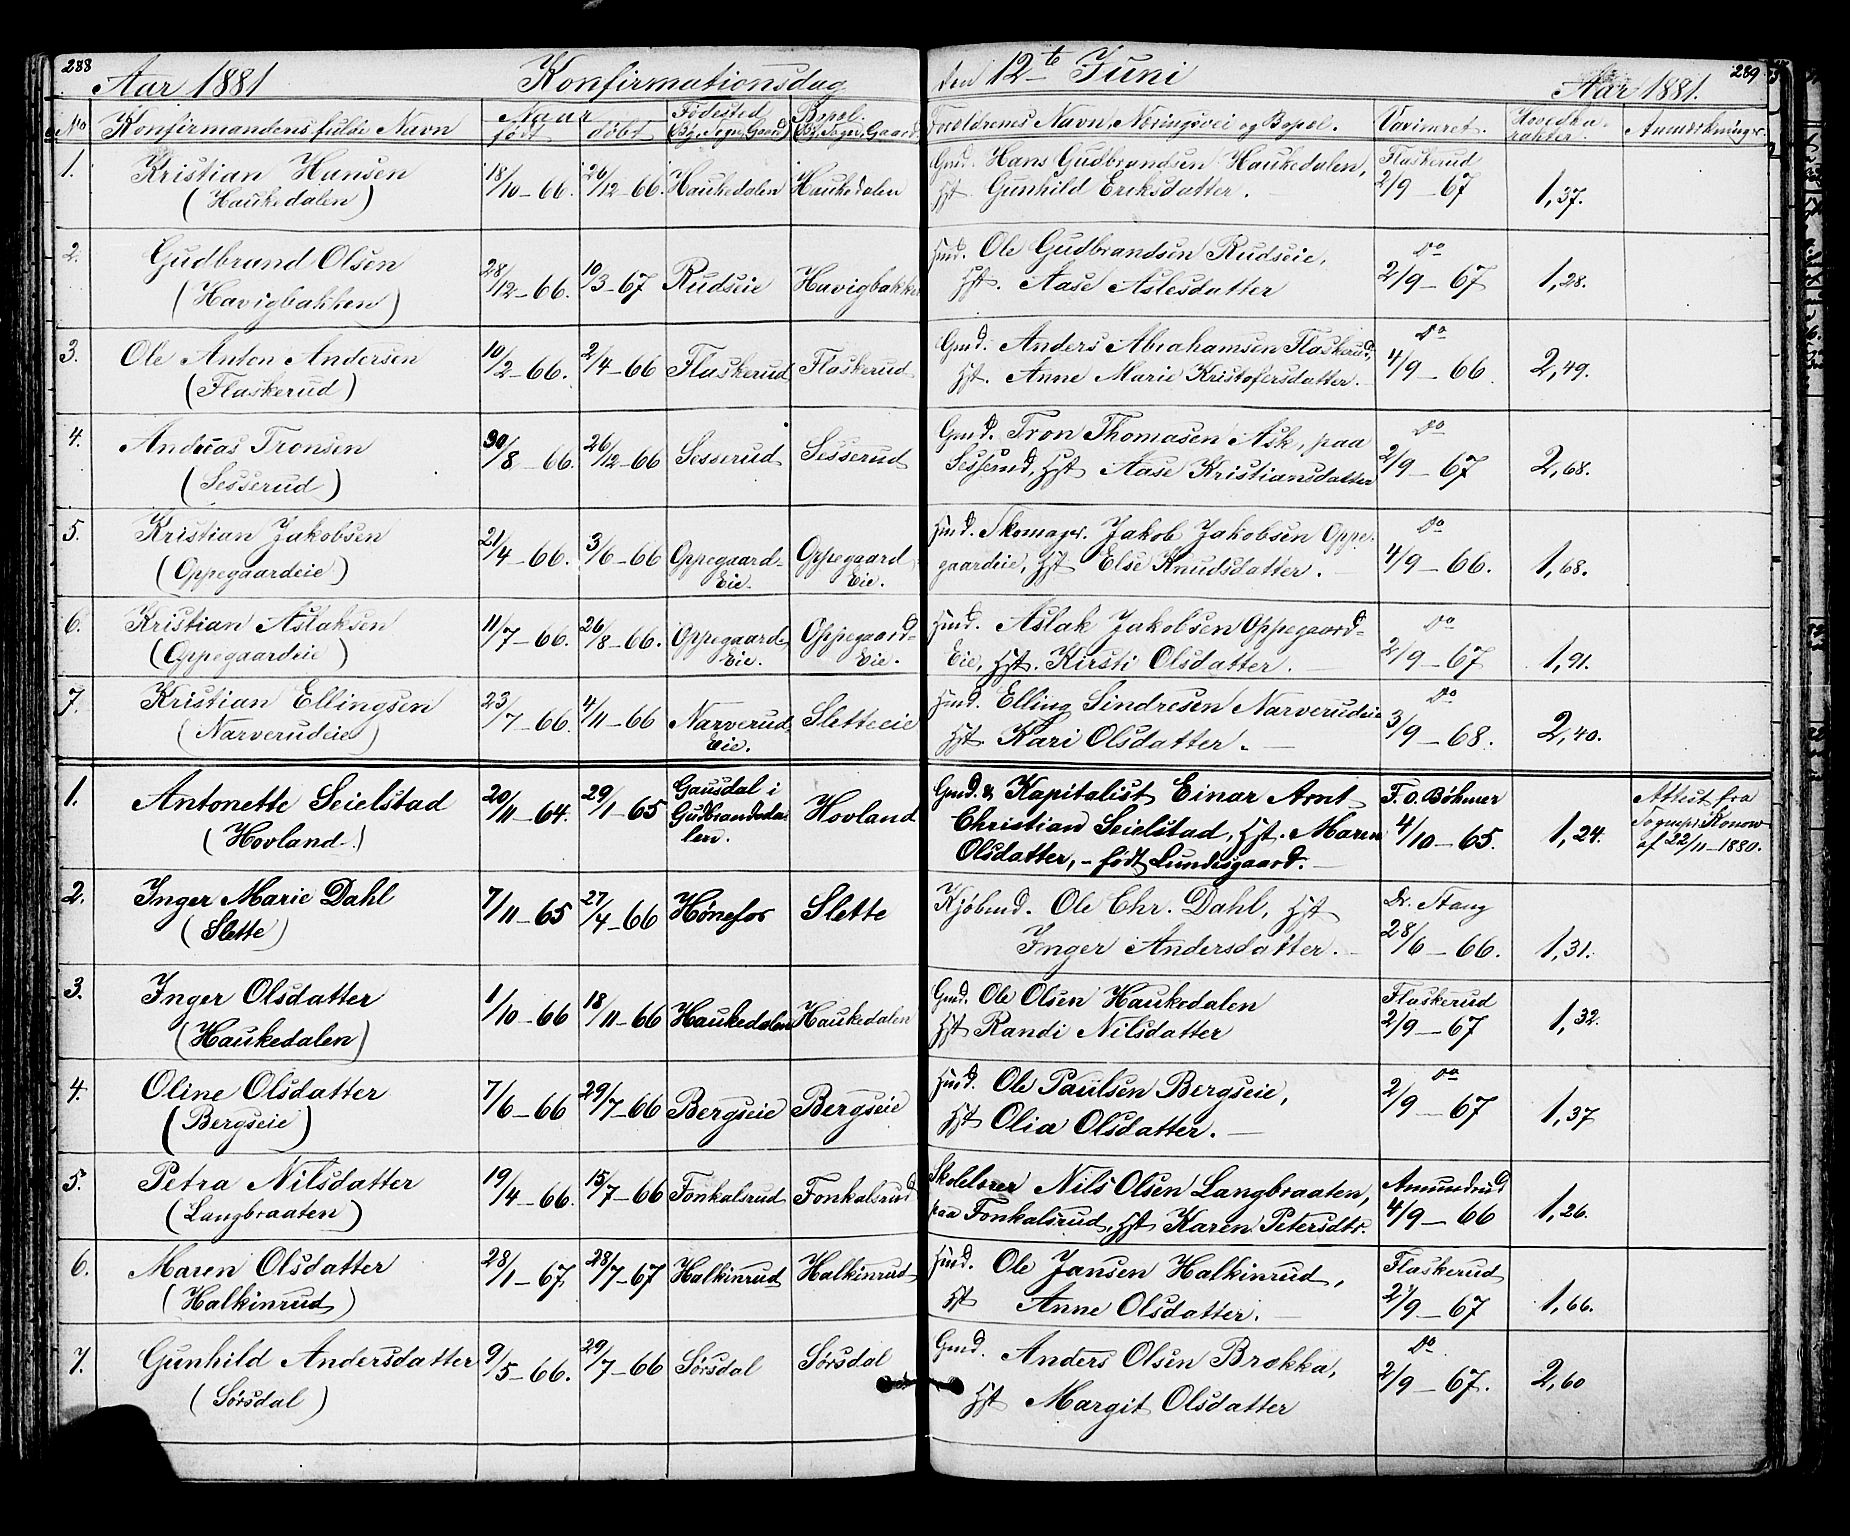 288
Aar 1881 Konfirmationsdag den 12te Juni Aar 1881. 289
No Konfirmandens fulde Navn Naar født døbt Fødested (By, Sogn, Gaard) Bopel. (By, Sogn, Gaard) Foreldrenes Navn, Neringsvei og Bopel. Vaxineret. Hovedkarakter. Anmerkninger.
1. Kristian Hansen 18/10-66. 26/12-66. Haukedalen Haukedalen Gmd. Hans Gudbrandsen Haukedalen, Flaskerud
(Haukedalen) Hst. Gunhild Eriksdatter. 2/9-67 1,37.
2. Gudbrand Olsen 28/12-66. 10/3-67 Rudseie Havigbakken Hmd. Ole Gudbrandsen Rudseie, Do
(Havigbakken) Hst. Aase Aslesdatter 2/9-67 1,28.
3. Ole Anton Andersen 10/2-66. 2/4-66 Flaskerud Flaskerud Gmd. Anders Abrahamsen Flaskerud, Do
(Flaskerud) Hst. Anne Marie Kristofersdatter. 4/9-66. 2,49.
4. Andreas Tronsen 30/8-66. 26/12-66 Sesserud Sesserud Gmd. Tron Thomasen Ask, paa Do
(Sesserud) Sesserud, Hst Aase Kristiansdatter 2/9-67 2,68.
5. Kristian Jakobsen 21/4-66. 3/6-66 Oppegaard- Oppegaard Hmd. Skomager. Jakob Jakobsen Oppe- Do
(Oppegaardeie) Eie. Eie. gaardeie, Hst Else Knudsdatter. 4/9-66. 1,68.
6. Kristian Aslaksen 11/7-66. 26/8-66. Oppegaard- Oppegaard- Hmd. Aslak Jakobsen Oppegaard- Do
(Oppegaardeie) Eie. Eie. Eie, Hst. Kirsti Olsdatter. 2/9-67 1,91.
7. Kristian Ellingsen 23/7-66. 4/11-66 Narverud- Sletteeie Hmd. Elling Sindresen Narverudeie Do
(Narverudeie) Eie. Hst. Kari Olsdatter. 3/9-68. 2,40.
1. Antonette Seielstad 20/11-64. 29/1-65 Gausdal i Hovland Gmd. & Kapitalist Einar Arnt F. O. Bøhmer Attest fra
(Hovland.) Gudbrandsda- Christian Seielstad, Hst. Maren 4/10-65. 1,24. Sognepr. Konow
len. Olsdatter, - født Lundesgaard. af 22/11-1880.
2. Inger Marie Dahl 7/11-65 27/4-66 Hønefos Slette Kjøbmd. Ole Chr. Dahl, Hst Dr. Stang
(Slette) Inger Andersdatter. 28/6-66. 1,31.
3. Inger Olsdatter 1/10-66 18/11-66 Haukedalen Haukedalen Gmd. Ole Olsen Haukedalen Flaskerud
(Haukedalen) Hst Randi Nilsdatter 2/9-67 1,32.
4. Oline Olsdatter 7/6-66 29/7-66 Bergseie Bergseie Hmd. Ole Paulsen Bergseie, Do
(Bergseie) Hst Olia Olsdatter. 2/9-67 1,37
5. Petra Nilsdatter 19/4-66. 15/7-66 Fonkalsrud Fonkalsrud Skolelærer Nils Olsen Langbraaten, Amundrud
(Langbraaten) paa Fonkalsrud, Hst Karen Petersdtr. 4/9-66 1,26.
6. Maren Olsdatter 28/1-67. 28/7-67 Halkinrud Halkinrud Hmd. Ole Jansen Halkinrud, Flaskerud
(Halkinrud) Hst Anne Olsdatter. 2/9-67 1,66.
7. Gunhild Andersdatter 9/5-66. 29/7-66 Sørsdal Sørsdal Gmd. Anders Olsen Brekka, Do
(Sørsdal) Hst Margit Olsdatter 2/9-67. 2,60